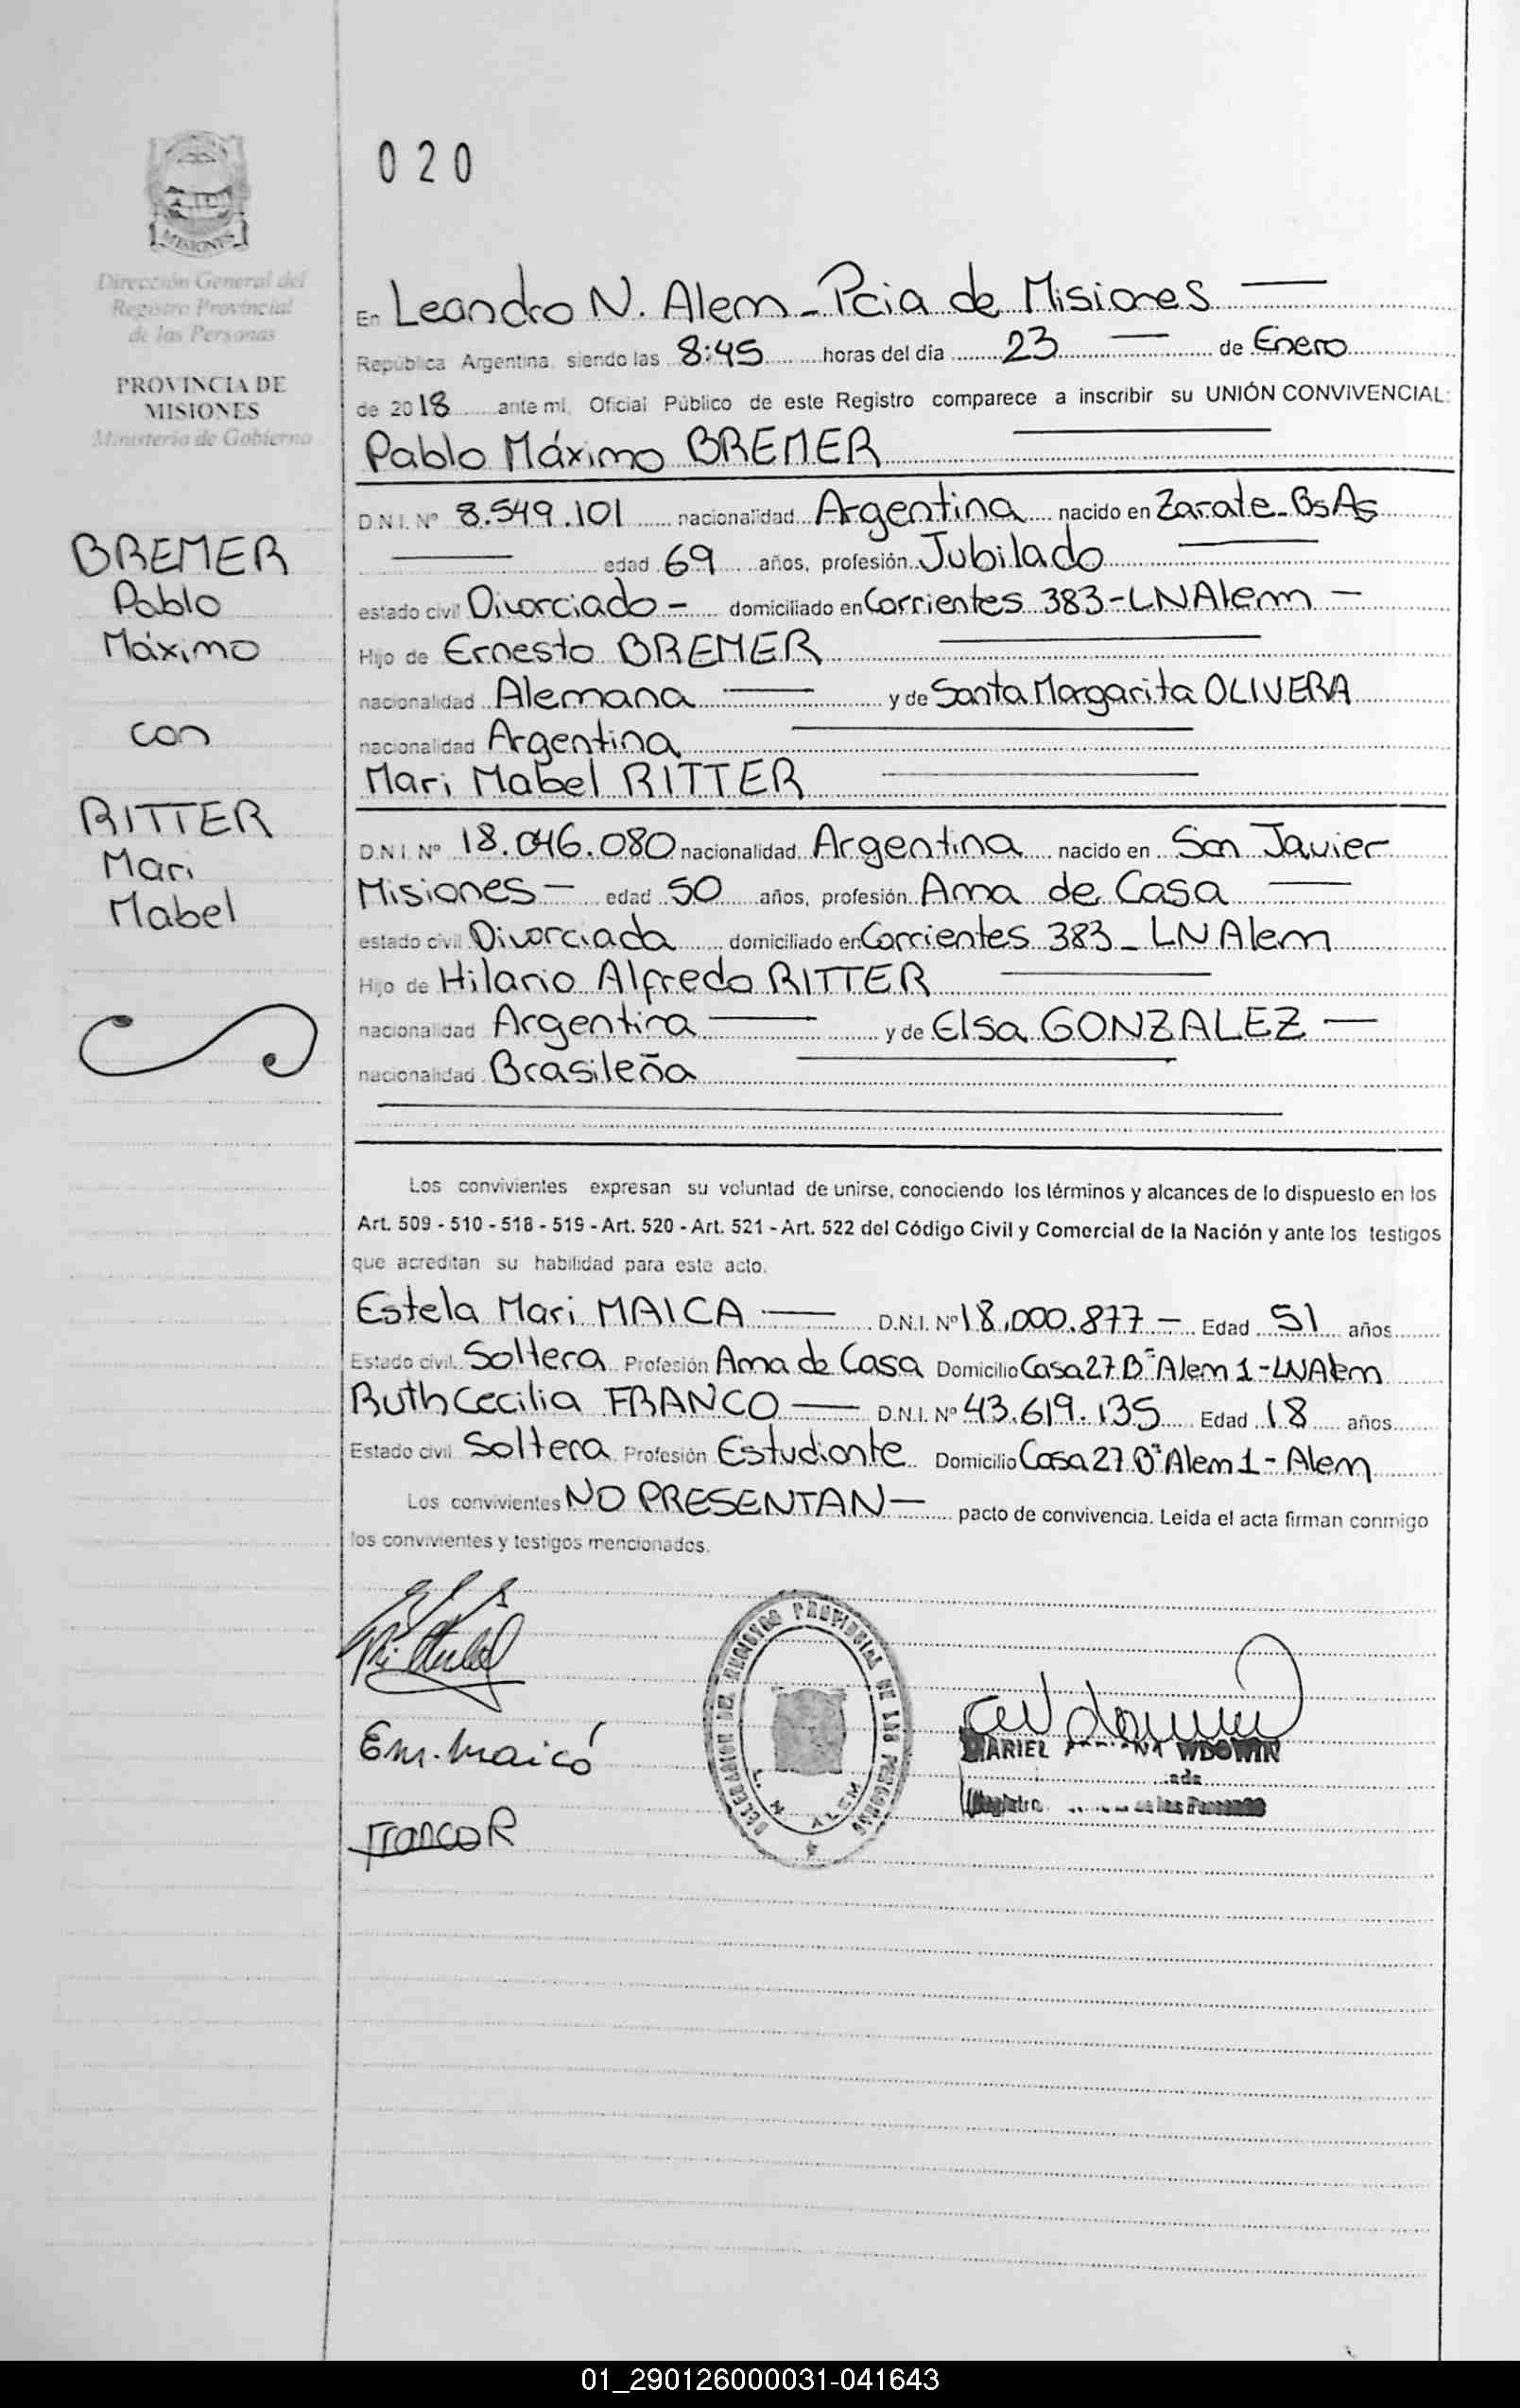 020
MISIONES
Dirección General del
Registro Provincial
de las Personas
PROVINCIA DE
MISIONES
Ministerio de Gobierno
BREMER
Pablo
Máximo
con
RITTER
Mari
Mabel
En Leandro N. Alem - Pcia de Misiones
República Argentina, siendo las 8:45 horas del día 23 de Enero
de 2018 ante mí, Oficial Público de este Registro comparece a inscribir su UNIÓN CONVIVENCIAL:
Pablo Máximo BREMER
D.N.I. Nº 8.549.101 nacionalidad Argentina nacido en Zarate - Bs As
edad 69 años, profesión Jubilado
estado civil Divorciado - domiciliado en Corrientes 383 - LN Alem -
Hijo de Ernesto BREMER
nacionalidad Alemana y de Santa Margarita OLIVERA
nacionalidad Argentina
Mari Mabel RITTER
D.N.I. Nº 18.046.080 nacionalidad Argentina nacido en San Javier
Misiones - edad 50 años, profesión Ama de Casa
estado civil Divorciada domiciliado en Corrientes 383 - LN Alem
Hijo de Hilario Alfredo RITTER
nacionalidad Argentina y de Elsa GONZALEZ -
nacionalidad Brasileña
Los convivientes expresan su voluntad de unirse, conociendo los términos y alcances de lo dispuesto en los
Art. 509 - 510 - 518 - 519 - Art. 520 - Art. 521 - Art. 522 del Código Civil y Comercial de la Nación y ante los testigos
que acreditan su habilidad para este acto.
Estela Mari MAICA D.N.I. Nº 18.000.877 - Edad 51 años
Estado civil Soltera Profesión Ama de Casa Domicilio Casa 27 Bº Alem 1 - LN Alem
Ruth Cecilia FRANCO D.N.I. Nº 43.619.135 Edad 18 años
Estado civil Soltera Profesión Estudiante Domicilio Casa 27 Bº Alem 1 - Alem
Los convivientes NO PRESENTAN - pacto de convivencia. Leída el acta firman conmigo
los convivientes y testigos mencionados.
DELEGACION DEL REGISTRO PROVINCIAL DE LAS PERSONAS
L. N. ALEM
MARIEL WDOWIN
Registro de las Personas
Franco R
01_290126000031-041643